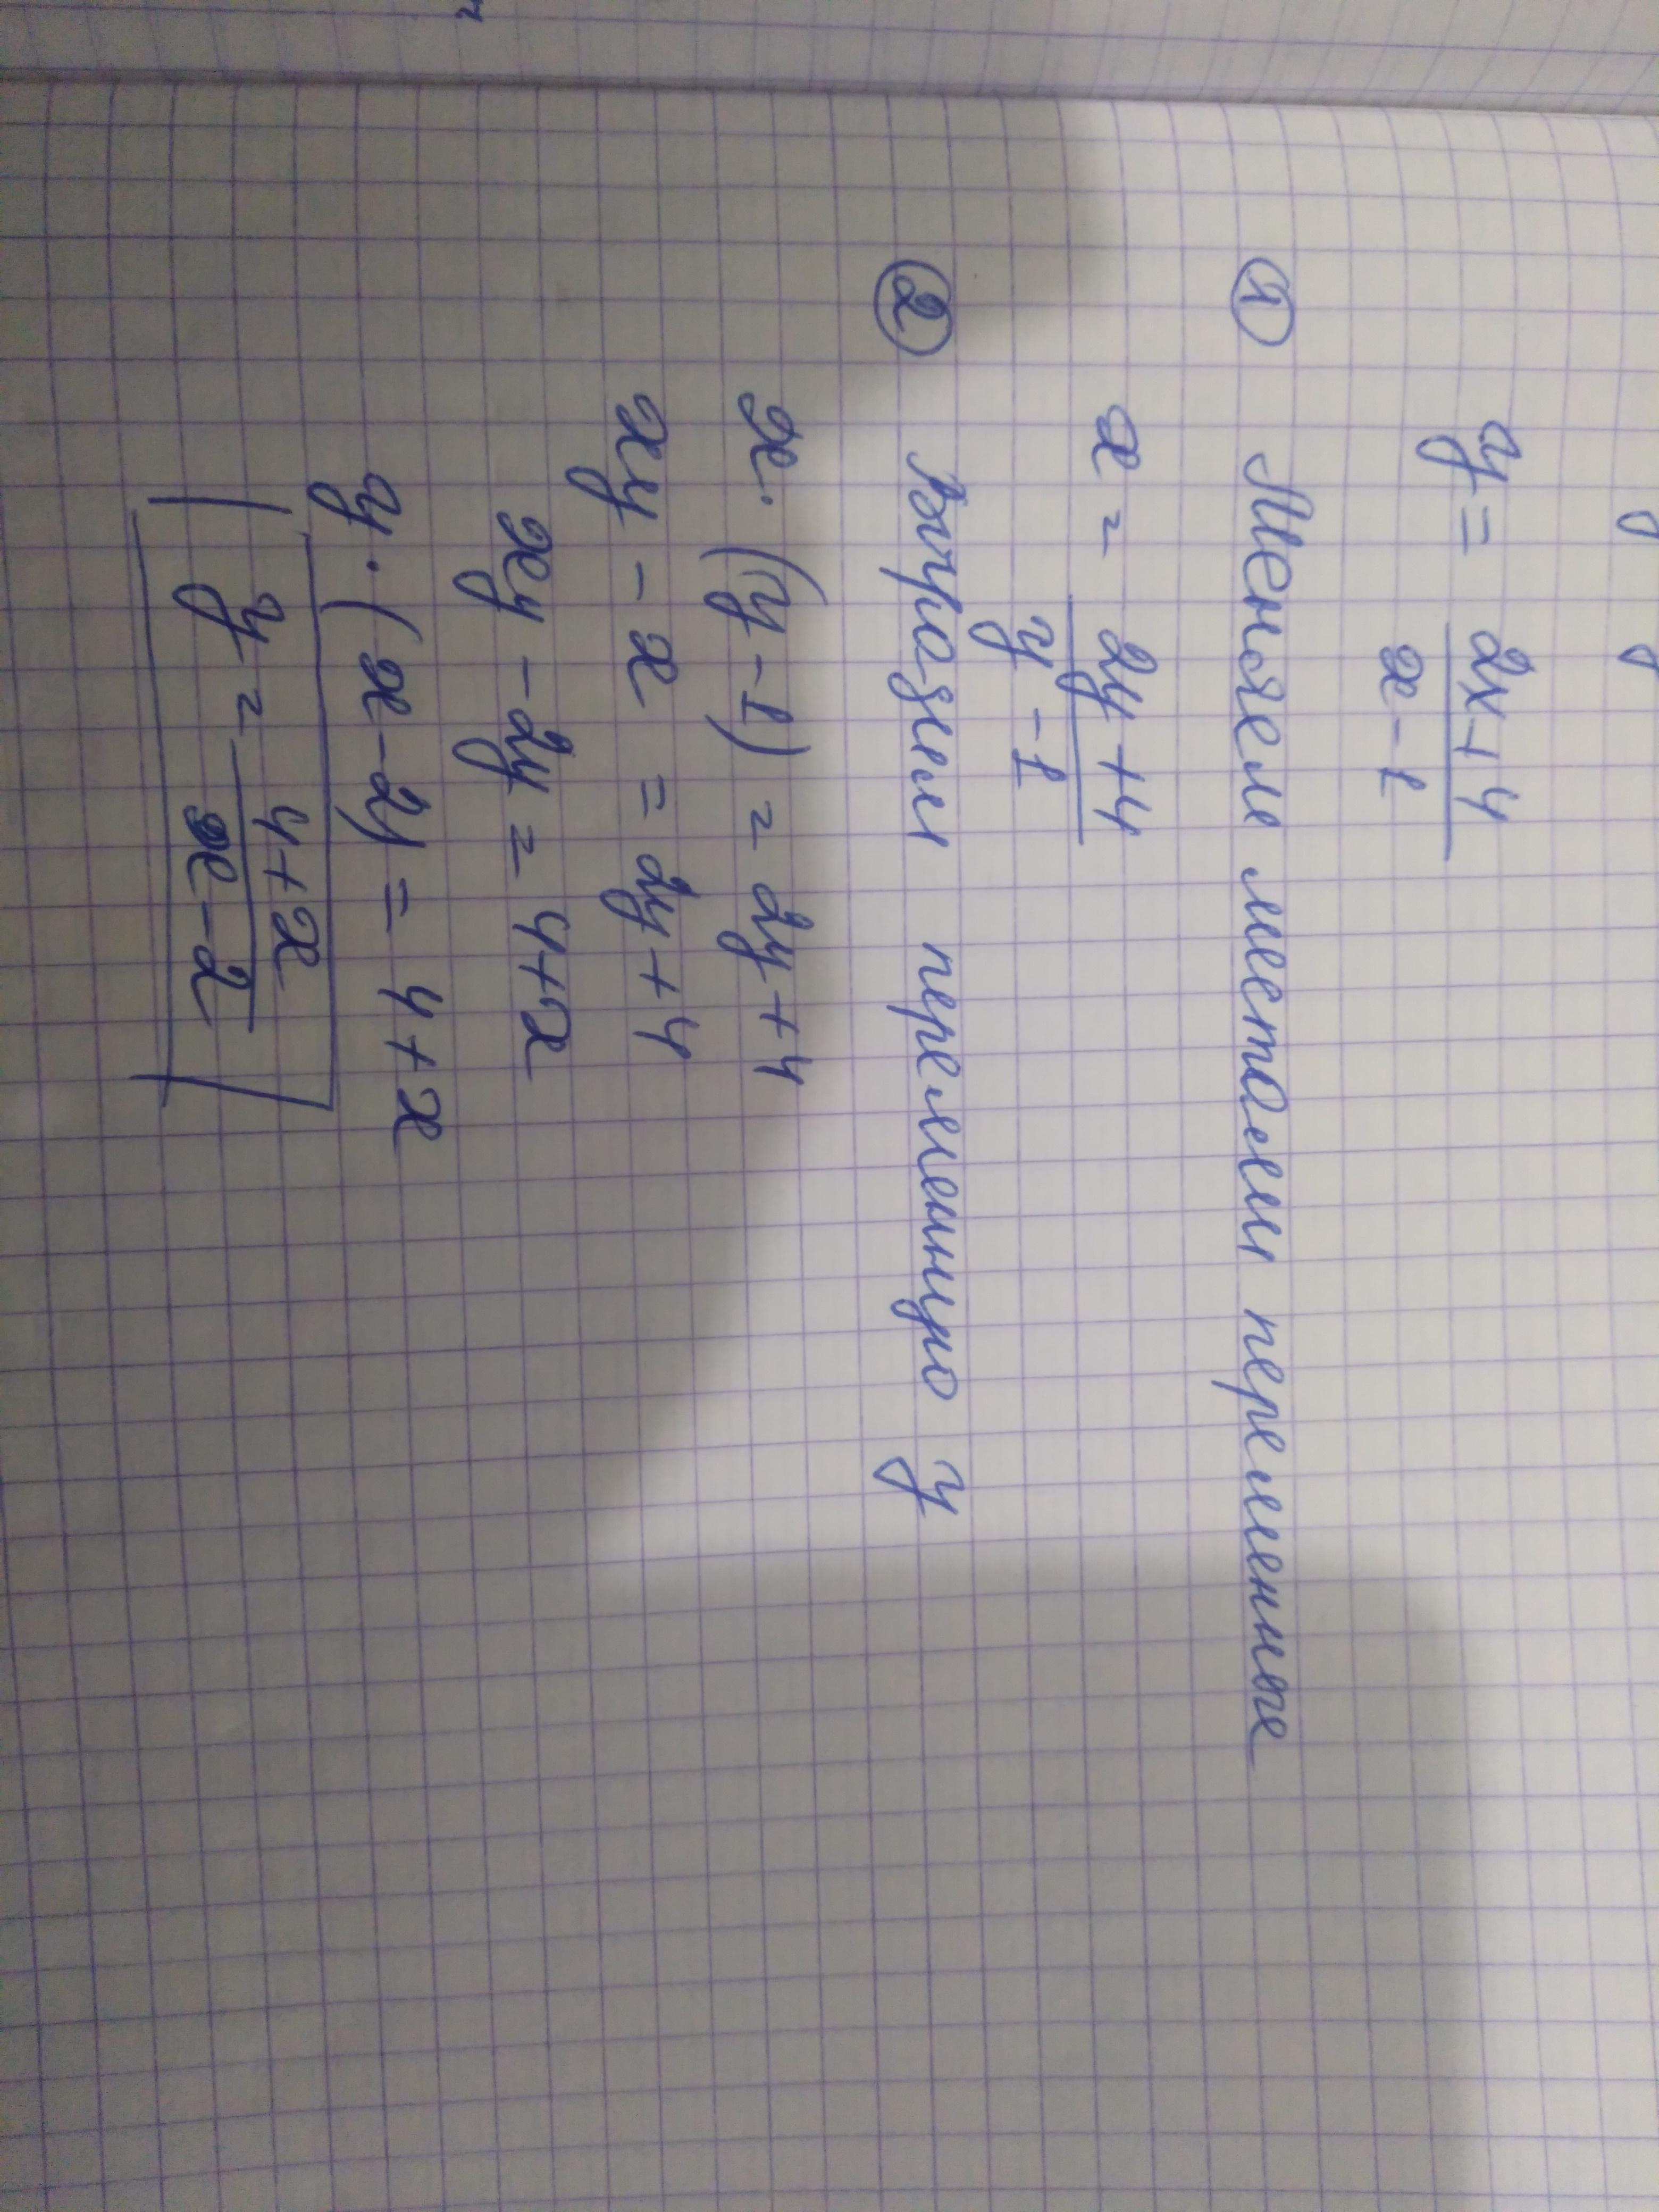 y = (2x+4)/(x-1)
① Меняем местами переменные
x = (2y+4)/(y-1)
② Выразим переменную y
x·(y-1) = 2y+4
xy - x = 2y+4
xy - 2y = 4+x
y·(x-2) = 4+x
y = (4+x)/(x-2)